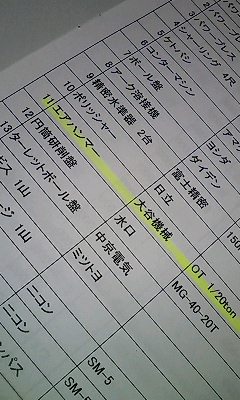 パワープレス
パワープレス
4 シャーリング 4尺
5 ケトバシ
6 コンターマシン
7 ボール盤 ヨシダ
8 アーク溶接機 ダイデン
9 精密水準器 2台 富士精密
10 ポリッシャー 日立
11 エアハンマー 大谷機械 OT 1/20ton
12 円筒研削盤 水口 MG-40-20T
13 ターレットボール盤 中京電気
1山 ミツトヨ
1山 ニコン SM-5
ニコン